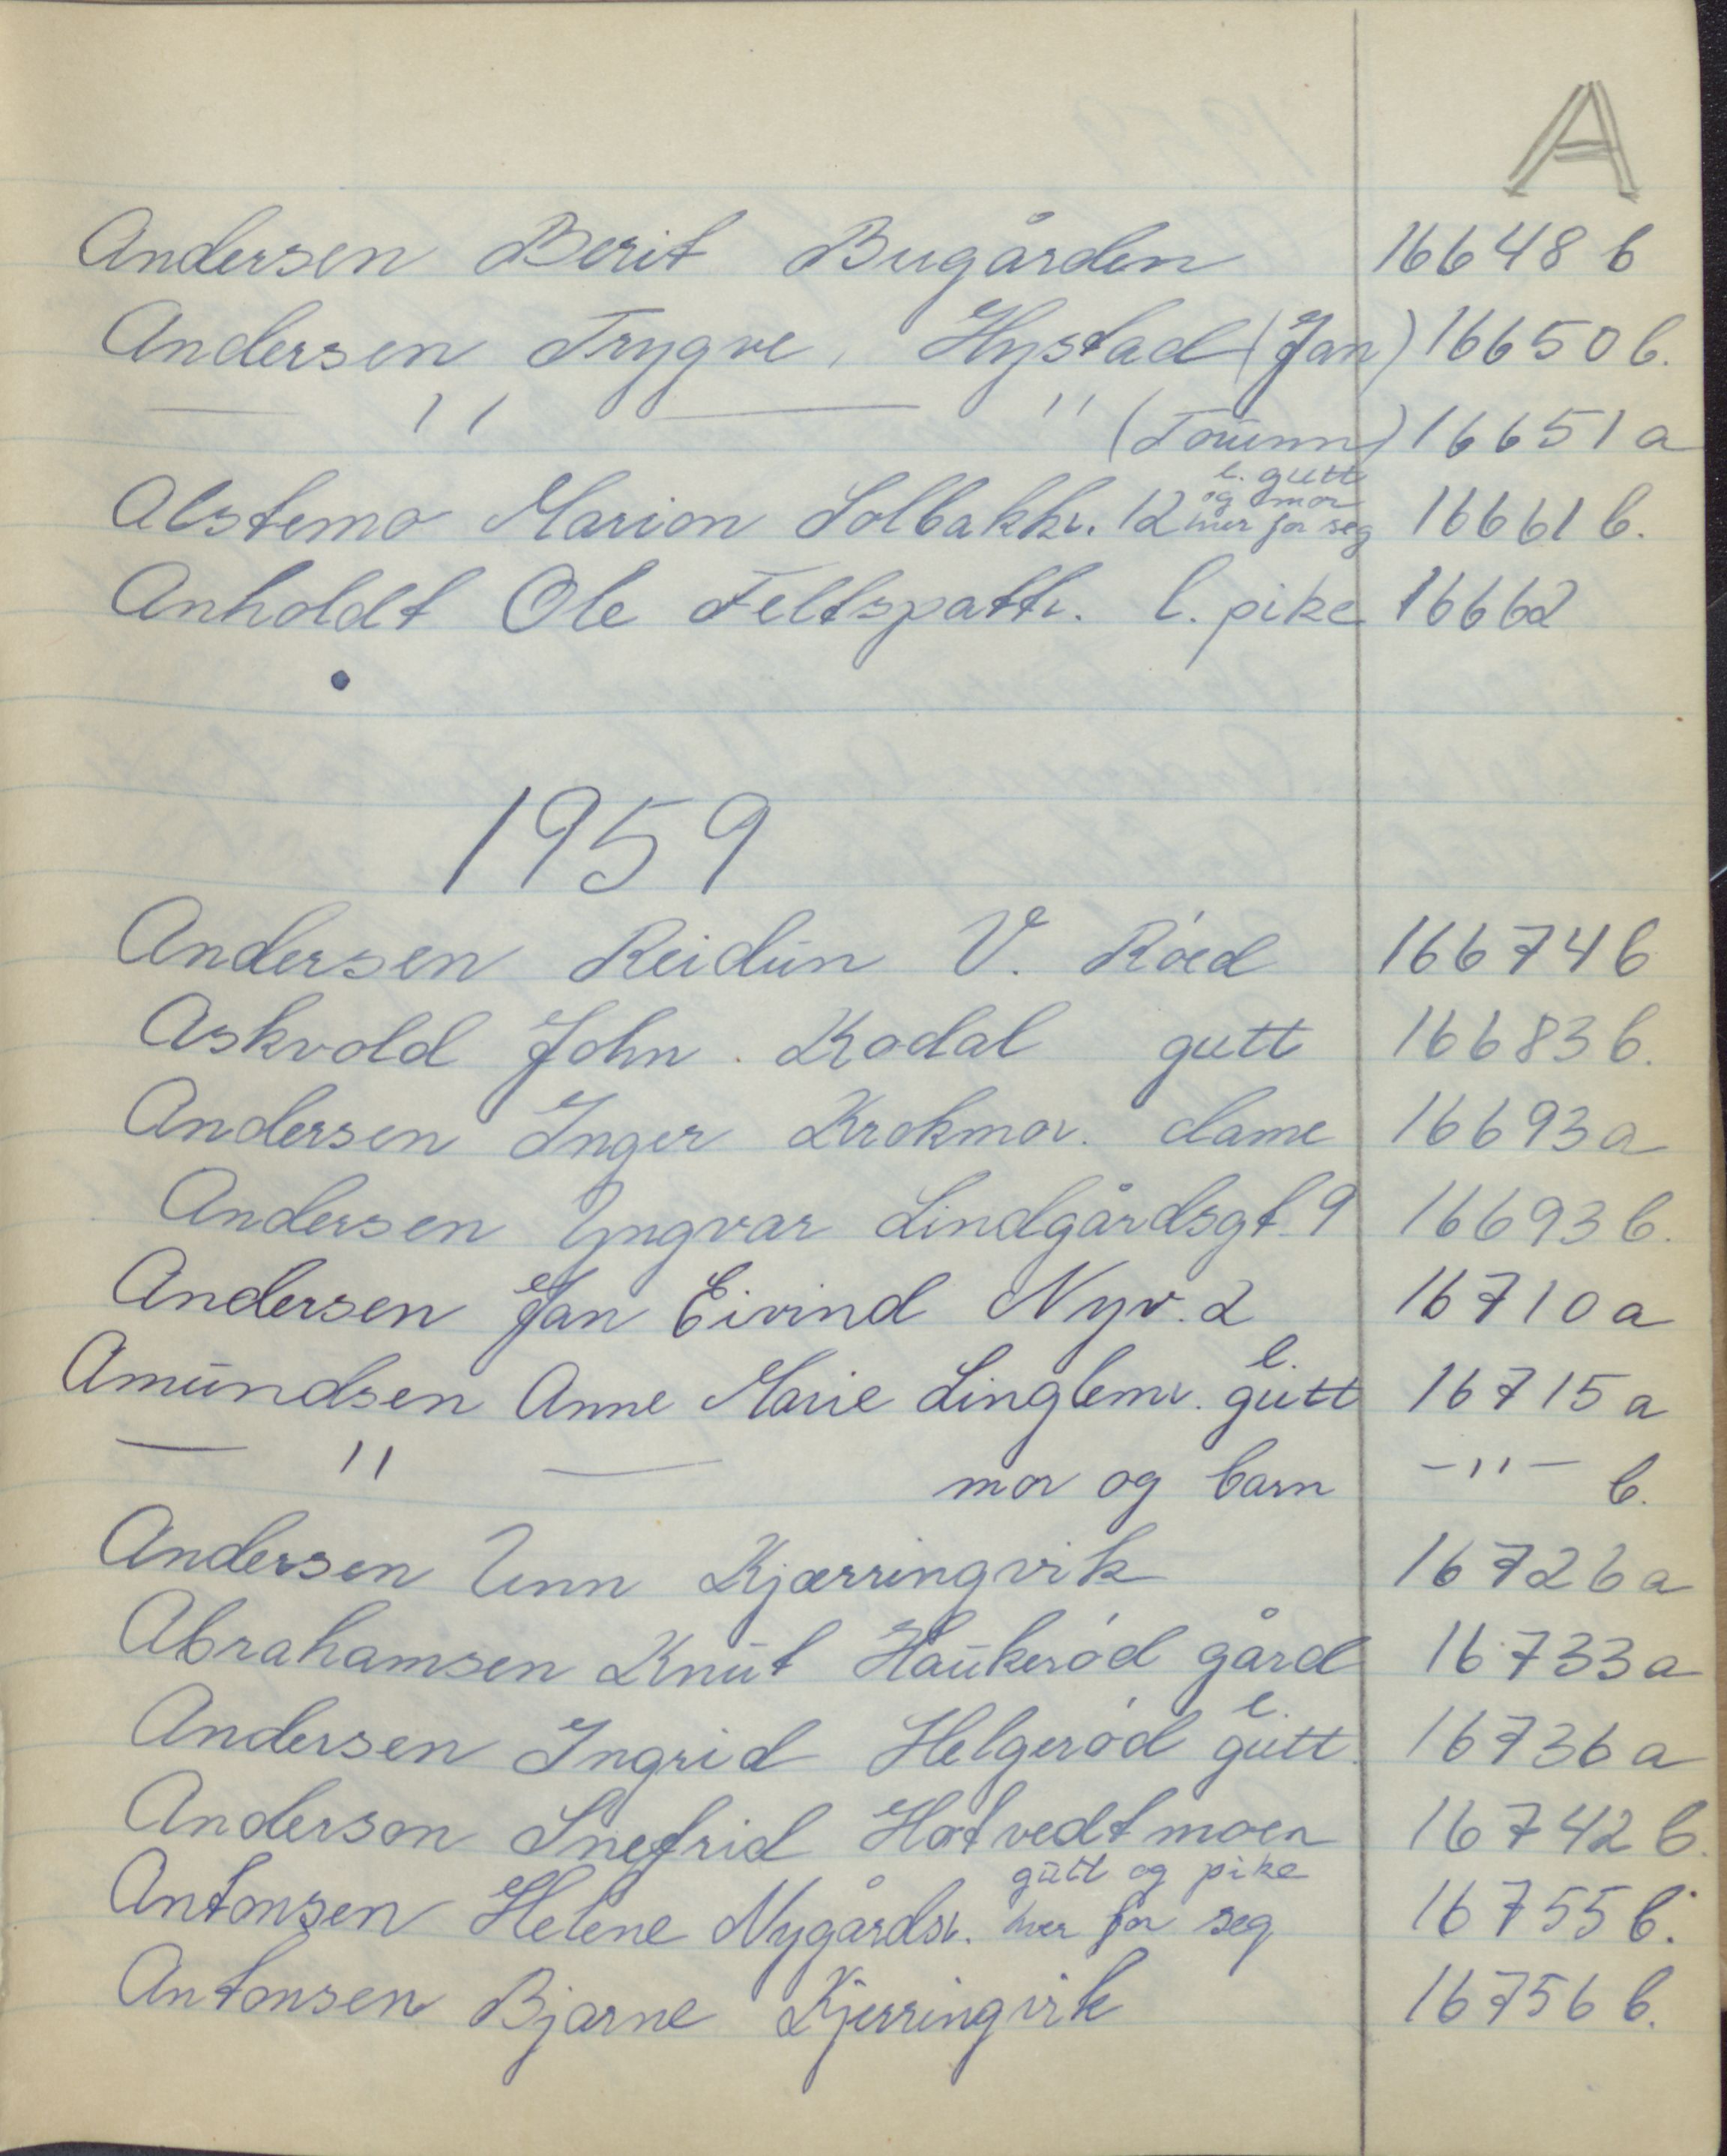 A
Andersen Berit Bugården 16648 b
Andersen Trygve, Hystad (Jan) 16650 b.
— " — " (Tounn) 16651 a
l. gutt
og mor
Alstemo Marion Solbakkv. 12 hver for seg 16661 b.
Anholdt Ole Feltspattv. l. pike 16662
1959
Andersen Reidun V. Röed 16674 b
Askvold John. Kodal gutt 16683 b.
Andersen Inger Krokmov. dame 16693 a
Andersen Yngvar Lindgårdsgt. 9 16693 b.
Andersen Jan Eivind Nyv. 2 16710 a
l.
Amundsen Anne Marie Linglemv. gutt 16715 a
— " — mor og barn —"— b.
Andersen Unn Kjærringvik 16726 a
Abrahamsen Knut Haukeród gård 16733 a
l.
Andersen Ingrid Helgeród gutt 16736 a
Anderson Snefrid Hotvedtmoen 16742 b.
gutt og pike
Antonsen Helene Nygårdsv. hver for seg 16755 b.
Antonsen Bjarne Kjerringvik 16756 b.